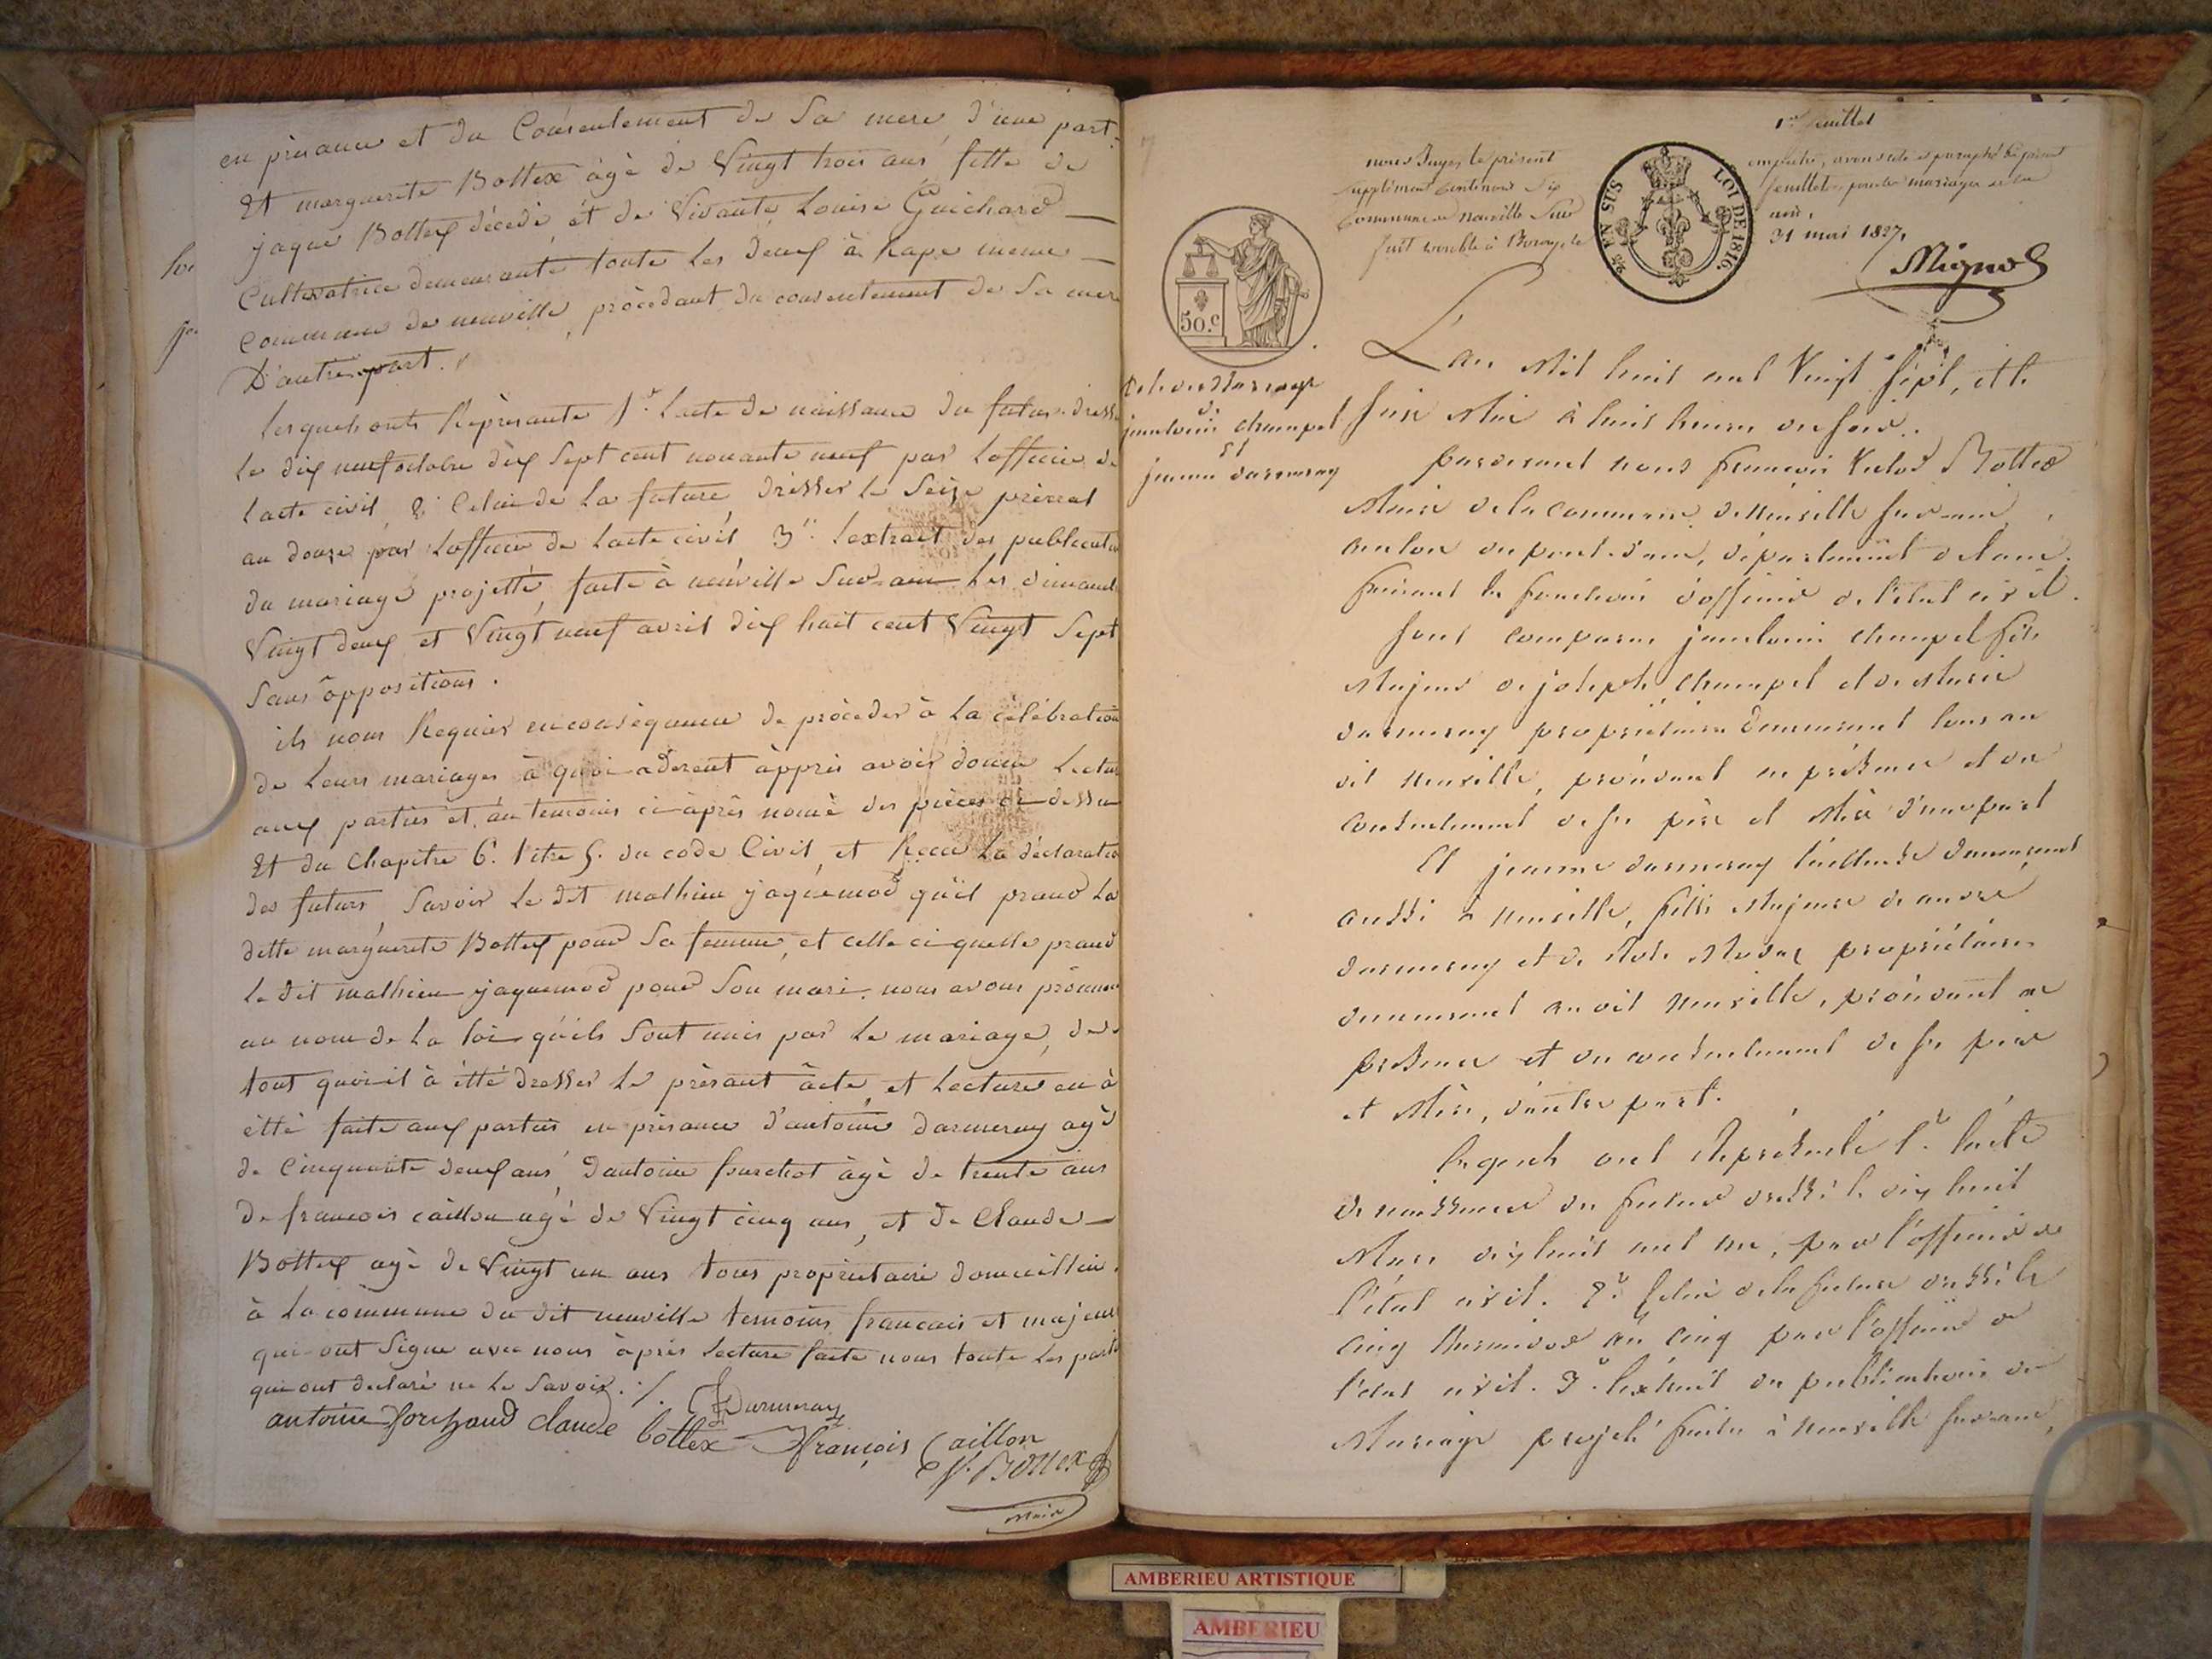 en présance et du Consentement de Sa mere d'une part
Et marguerite Bottex âgé de Vingt trois ans, fille de
jaque Bottex décédé, et de Vivante Louise Guichard
Cultivatrice demeurante toute les deux à hape meme
Commune de neuville, procédant du consentement de Sa mere
D'autre part.
lesquels onts Représanté 1°. Lacte de naissance du futur dressé
le dix neuf octobre dix Sept cent nonante neuf par Lofficier de
lacte civil, 2° Celui de La future, dresser le Seize prérial
an douze par Lofficier de Lacte civil, 3° Lextrait des publication
du mariage projetté, faite à neuville Sur ain Les dimanch
Vingt deux et Vingt neuf avril dix huit cent Vingt Sept
Sans oppositions.
ils nous Requier en conséquance de procéder à La célébration
de Leurs mariages à quoi aderent àpprès avoir donné Lectur
aux parties et au temoins ci-àprès nomé des pièces ci-dessu
Et du Chapitre 6. titre 5. du code Civil, et Recu La déclaratio
des futurs, Savoir Le dit mathieu jaquemod qu'il prand La
dette marguerite Bottex pour Sa femme, et celle ci quelle prand
le dit mathieu jaquemod pour Son mari. nous avons prononc
au nom de La loi qu'ils Sont unis par Le mariage, de
tout quoi il à étté dresser Le présant acte, et Lecture en à
étté faite aux parties en présance d'antoine darmeray agé
de Cinquante deux ans, dantoine age de trente ans
de francois caillon agé de Vingt cinq ans, et de Claude
Bottex agé de Vingt un ans tous propriétaire domicillié
à La commune du dit neuville temoins francais et majeur
qui ont Signe avec nous àprès Lecture faite nous toute Les parti
qui ont declaré ne Le Savoir. ./. Darmeray
antoine claude bottex françois Caillon
Bottex
Maire
1er feuillet
nous Juge, le présent
supplément contenant Six
Commune de neuville Sur
EN SUS
LOI DE 1816.
feuillets, pour les mariages
31 mai 1827.
Mignot
50.c
acte de Mariage
de
jean louis champel
et
jeanne darmeray
L'an Mil huit cent Vingt Sept, et le
à huit heures du soir.
pardevant nous françois Bottex
Maire de la Commune de Neuville sur ain,
canton du pont-d'ain, département de l'ain.
faisant les fonctions d'officier de l'état civil.
Sont comparus jean louis champel fils
Majeur de joseph Champel et de Marie
darmeray propriétaires demeurant tous au
dit Neuville, procédant en présence et du
consentement de ses père et Mère d'une part
Et jeanne darmeray tailleuse demeurant
aussi à Neuville, fille Majeure de andré
darmeray et de propriétaires
demeurant au dit Neuville, procédant en
présence et du consentement de ses père
et Mère, d'autre part.
Lesquels ont Représenté 1°. l'acte
de naissance du futur dressé le dix huit
Mars dix huit cent un, par l'officier de
l'état civil. 2°. Celui de la future dressé le
cinq an cinq par l'officier de
l'état civil. 3°. l'extrait des publications de
Mariage projeté faites à Neuville sur ain,
AMBERIEU ARTISTIQUE
AMBERIEU